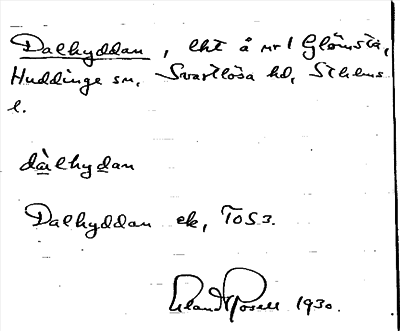 Dalhyddan, lht å nr 1 Glömsta,
Huddinge sn, Svartlösa hd, Sthlms
l.
dàlhydan
Dalhyddan ek, TOS3.
Erland Rosell 1930.